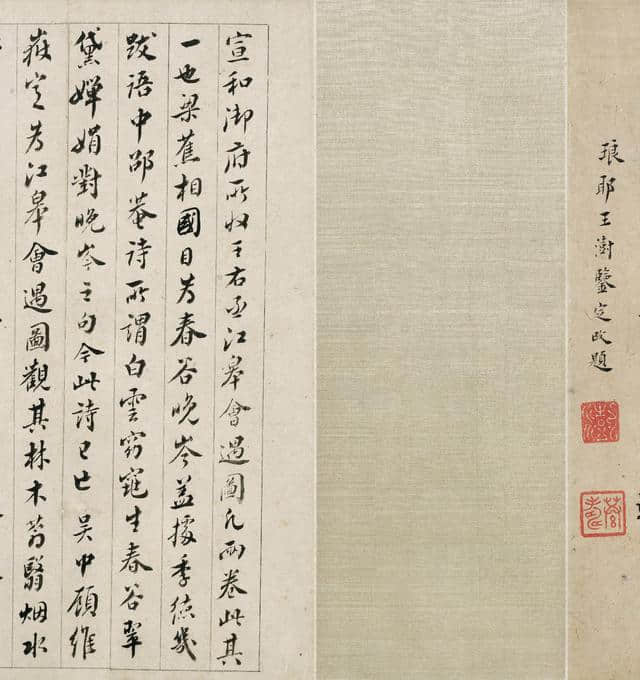 琅邪王澍鑒定題
宣和御府所收王右丞江皋會遇圖凡兩卷此其
一也梁蕉相國目為春谷晚岑蓋據季德幾
跋語中邵菴詩所謂白雲窈窕生春谷翠
黛嬋娟對晚岑之句今此詩已亡 吳中顧維
嶽定為江皋會遇圖觀其林木蓊翳烟水